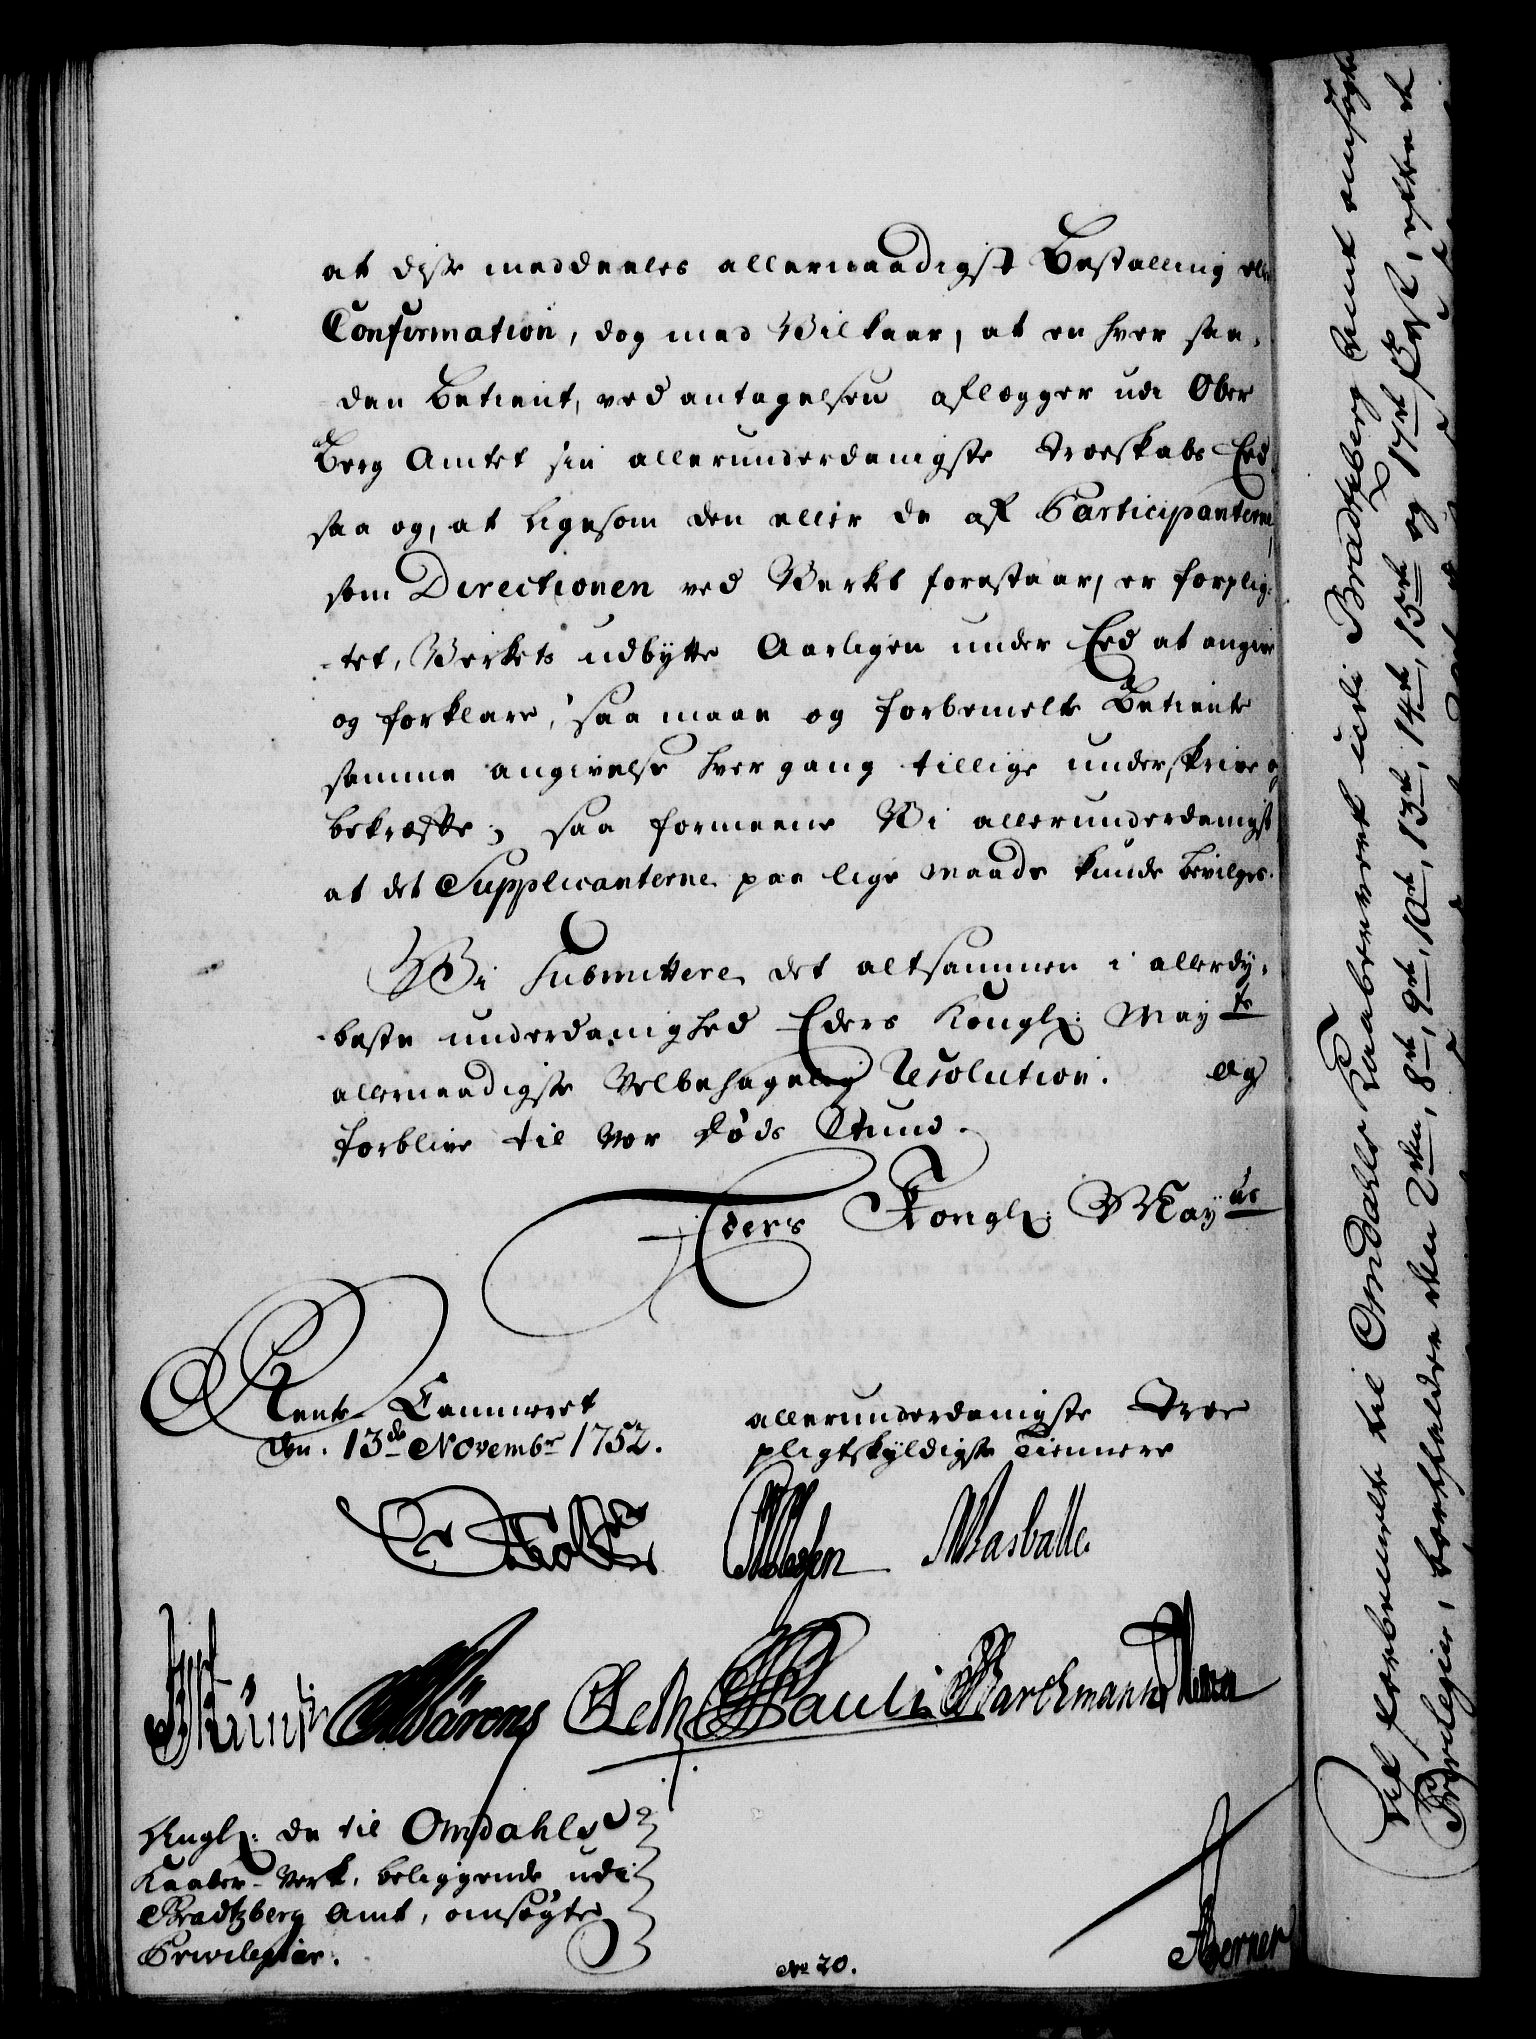 at disse meddeeles allernaadigst Bestalling eller
Confirmation, dog med Vilkaar, at en hver saa-
dan Betient, ved antagelsen aflægger udi Ober
Berg Amtet sin allerunderdanigste Troeskabs Eed
saa og, at ligesom den eller de af Participanterne,
som Directionen ved Verket forestaar, er forplig-
-tet, Verkets udbytte Aarligen under Eed at angive
og forklare, saa maae og forbemelte Betiente
samme angivelse hver gang tillige underskrive og
bekræfte; saa formeene Vi allerunderdanigst,
at det Supplicanterne paa lige maade kunde bevilges.
Vi Submittere det altsammen i allerdy-
-beste underdanighed Eders Kongl: May ts
allernaadigste Velbehagelig Resolution. Og
forblive til Vor Døds Stund.
Eders Kongl: May ts
Rente Cammeret
den. 13de Novembr 1752.
allerunderdanigste Troe
pligtskyldigste Tiennere
Masballe.
Pauli Barchmann
Angl: de til Omdahls
Kaaber-Verk, beliggende udi
Bradtzberg Amt, omsøgte
Privilegier.
No 20.
Berner
Til forbemelte til Omdahls Kaaberverk udi Bradtzberg Amt omsøgte
Privilegier, forholdere den 2den, 8de, 9de, 10de, 13de, 14de, 15de og 17de Post, efter de